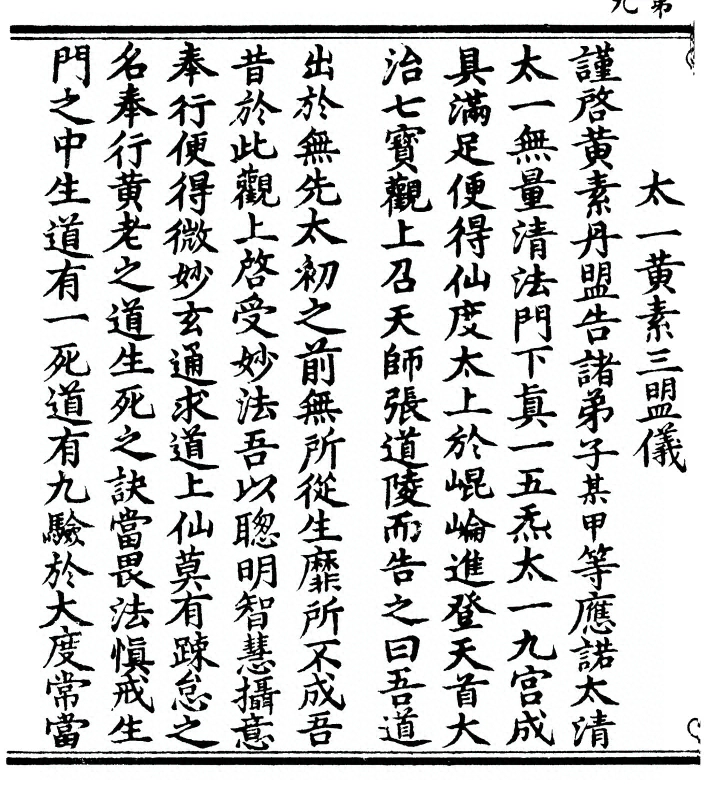 弟九
太一黃素三盟儀
謹啓黃素丹盟告諸弟子某甲等應諾太清
太一無量清法門下眞一五炁太一九宮成
具滿足便得仙度太上於崐崘進登天首大
治七寳觀上召天師張道陵而告之曰吾道
出於無先太初之前無所從生靡所不成吾
昔於此觀上啓受妙法吾以聰明智慧攝意
奉行便得微妙玄通求道上仙莫有踈怠之
名奉行黃老之道生死之訣當畏法愼戒生
門之中生道有一死道有九驗於大度常當